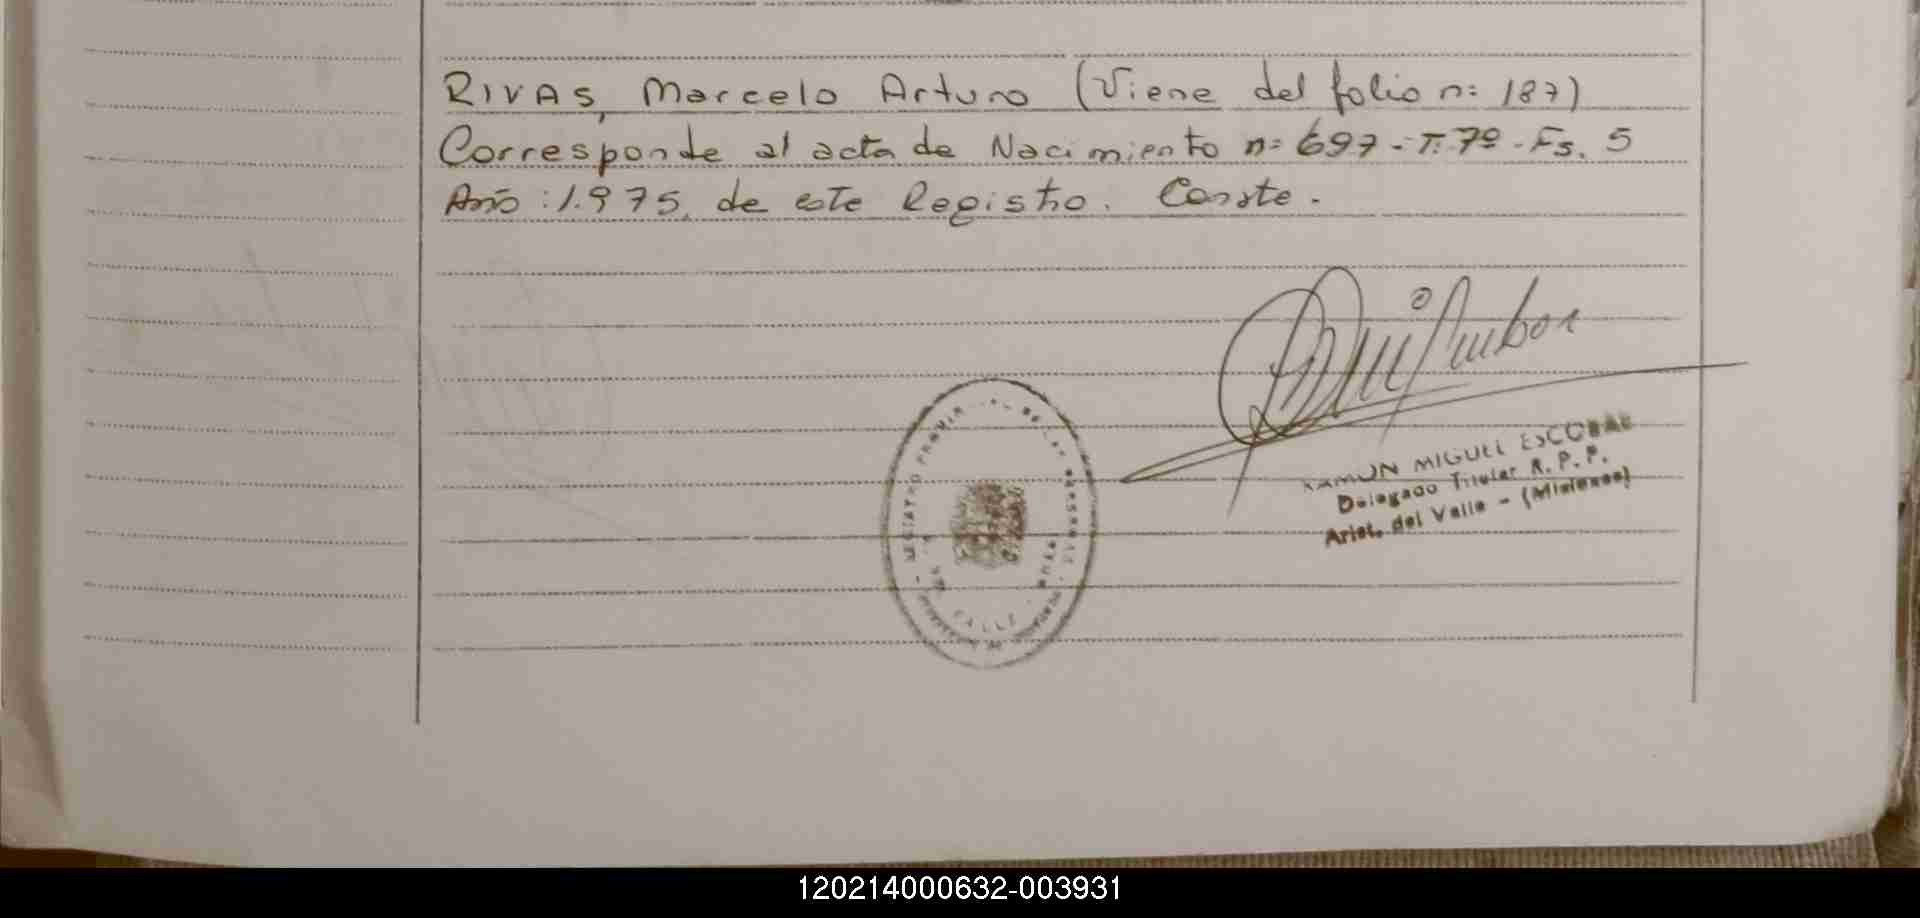 RIVAS, Marcelo Arturo (Viene del folio n: 187)
Corresponde al acta de Nacimiento n= 697.-T.7º-Fs. 5
Año:1.975, de este Registro. Conste.
RAMON MIGUEL ESCOBAR
Delegado Titular R. P. P.
Arist. del Valle - (Misiones)
VALLE
120214000632-003931